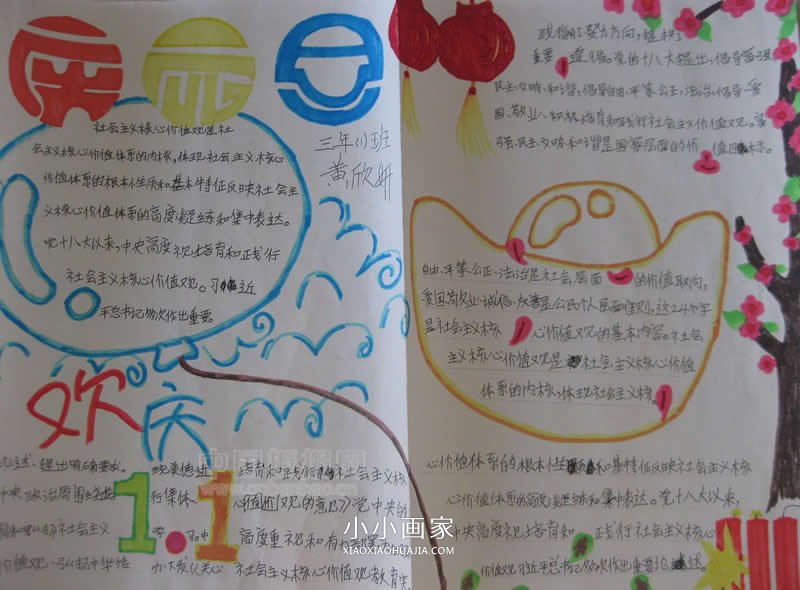 社会主义核心价值观是社
会主义核心价值体系的内核,体现社会主义核心
价值体系的根本性质和基本特征反映社会主
义核心价值体系的高度凝练和集中表达。
党十八大以来,中央高度视上培育和正践行
社会主义核心价值观。习近
平总书记多次作出重要
三年(1)班
黄欣妍
欢庆
1.1
论述、提出明确要求。
中央政治局围绕
社会主义
价值观
行集体
学
培育和践行社会主义核心
价值观的意见》党中央的
高度重视和有
社会主义核心价值观教育
努力方向,提供了
重要遵循。党的十八大提出,倡导富强
民主、文明、和谐,倡导自由、平等公正、法治,倡导爱
国、敬业、积极培育和践行社会主义价值观。富
强、民主、文明和谐是国家层面的价值目标。
自由、平等公正、法治是社会层面的价值取向,
爱国敬业、诚信、友善是公民个人层面准则,这24个字
是社会主义核心价值观的基本内容。社会
主义核心价值观是社会主义核心价值
体系的内核,体现社会主义核
心价值体系的根本性和基特征反映社会主义核
心价值体系的高度凝练和集中表达。党十八大以来,
中央高度视培育和正践行社会主义核心
价值观习近平总书记多次作出重要论述。
小小画家
XIAOXIAOHUAJIA.COM